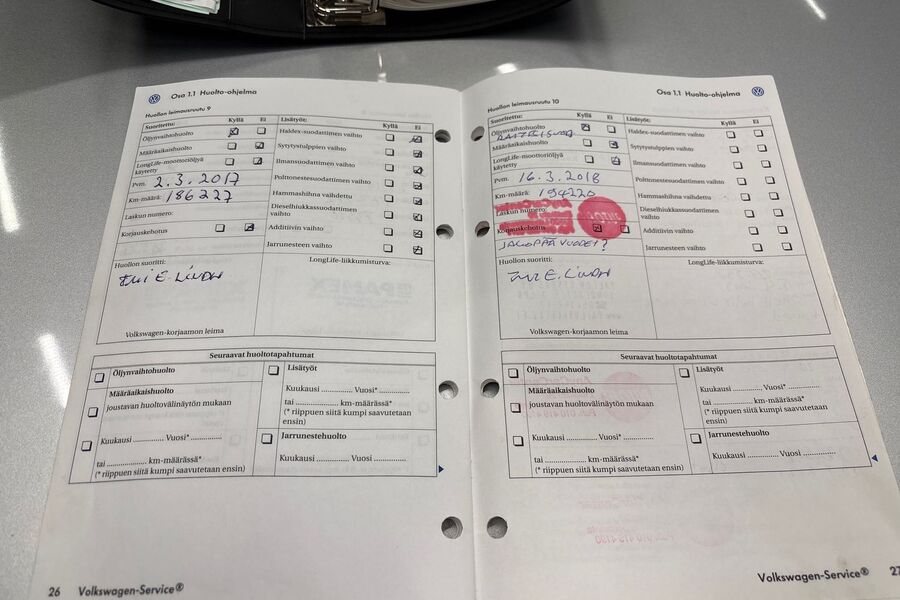 Osa 1.1 Huolto-ohjelma
Huollon leimausruutu 9
Suoritettu: Kyllä Ei
Öljynvaihtohuolto
Määräaikaishuolto
LongLife-moottoriöljyä
käytetty
Pvm. 2.3.2017
Km-määrä: 186227
Laskun numero:
Korjauskehotus
Lisätyöt: Kyllä Ei
Haldex-suodattimen vaihto
Sytytystulppien vaihto
Ilmansuodattimen vaihto
Polttonestesuodattimen vaihto
Hammashihna vaihdettu
Dieselhiukkassuodattimen
vaihto
Additiivin vaihto
Jarrunesteen vaihto
Huollon suoritti:
E. Lindh
Volkswagen-korjaamon leima
LongLife-liikkumisturva:
Seuraavat huoltotapahtumat
Öljynvaihtohuolto
Määräaikaishuolto
joustavan huoltovälinäytön mukaan
Kuukausi .............. Vuosi*..............
tai ........................ km-määrässä*
(* riippuen siitä kumpi saavutetaan ensin)
Lisätyöt
Kuukausi .............. Vuosi*..............
tai ........................ km-määrässä*
(* riippuen siitä kumpi saavutetaan
ensin)
Jarrunestehuolto
Kuukausi .............. Vuosi ..............
26 Volkswagen-Service®
Osa 1.1 Huolto-ohjelma
Huollon leimausruutu 10
Suoritettu: Kyllä Ei
Öljynvaihtohuolto
Määräaikaishuolto
LongLife-moottoriöljyä
käytetty
Pvm. 16.3.2018
Km-määrä: 194220
Laskun numero:
Korjauskehotus
VUODET?
Lisätyöt: Kyllä Ei
Haldex-suodattimen vaihto
Sytytystulppien vaihto
Ilmansuodattimen vaihto
Polttonestesuodattimen vaihto
Hammashihna vaihdettu
Dieselhiukkassuodattimen
vaihto
Additiivin vaihto
Jarrunesteen vaihto
Huollon suoritti:
E. Lindh
Volkswagen-korjaamon leima
LongLife-liikkumisturva:
Seuraavat huoltotapahtumat
Öljynvaihtohuolto
Määräaikaishuolto
joustavan huoltovälinäytön mukaan
Kuukausi .............. Vuosi*..............
tai ........................ km-määrässä*
(* riippuen siitä kumpi saavutetaan ensin)
Lisätyöt
Kuukausi .............. Vuosi*..............
tai ........................ km-määrässä*
(* riippuen siitä kumpi saavutetaan
ensin)
Jarrunestehuolto
Kuukausi .............. Vuosi ..............
Volkswagen-Service® 27